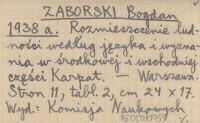 ZABORSKI Bogdan
1938 a. Rozmieszczenie lud-
ności według języka i wyzna-
nia w środkowej i wschodniej
części Karpat. — Warszawa.
Stron 11, tabl. 2, cm 24 x 17.
Wyd: Komisja Naukowych